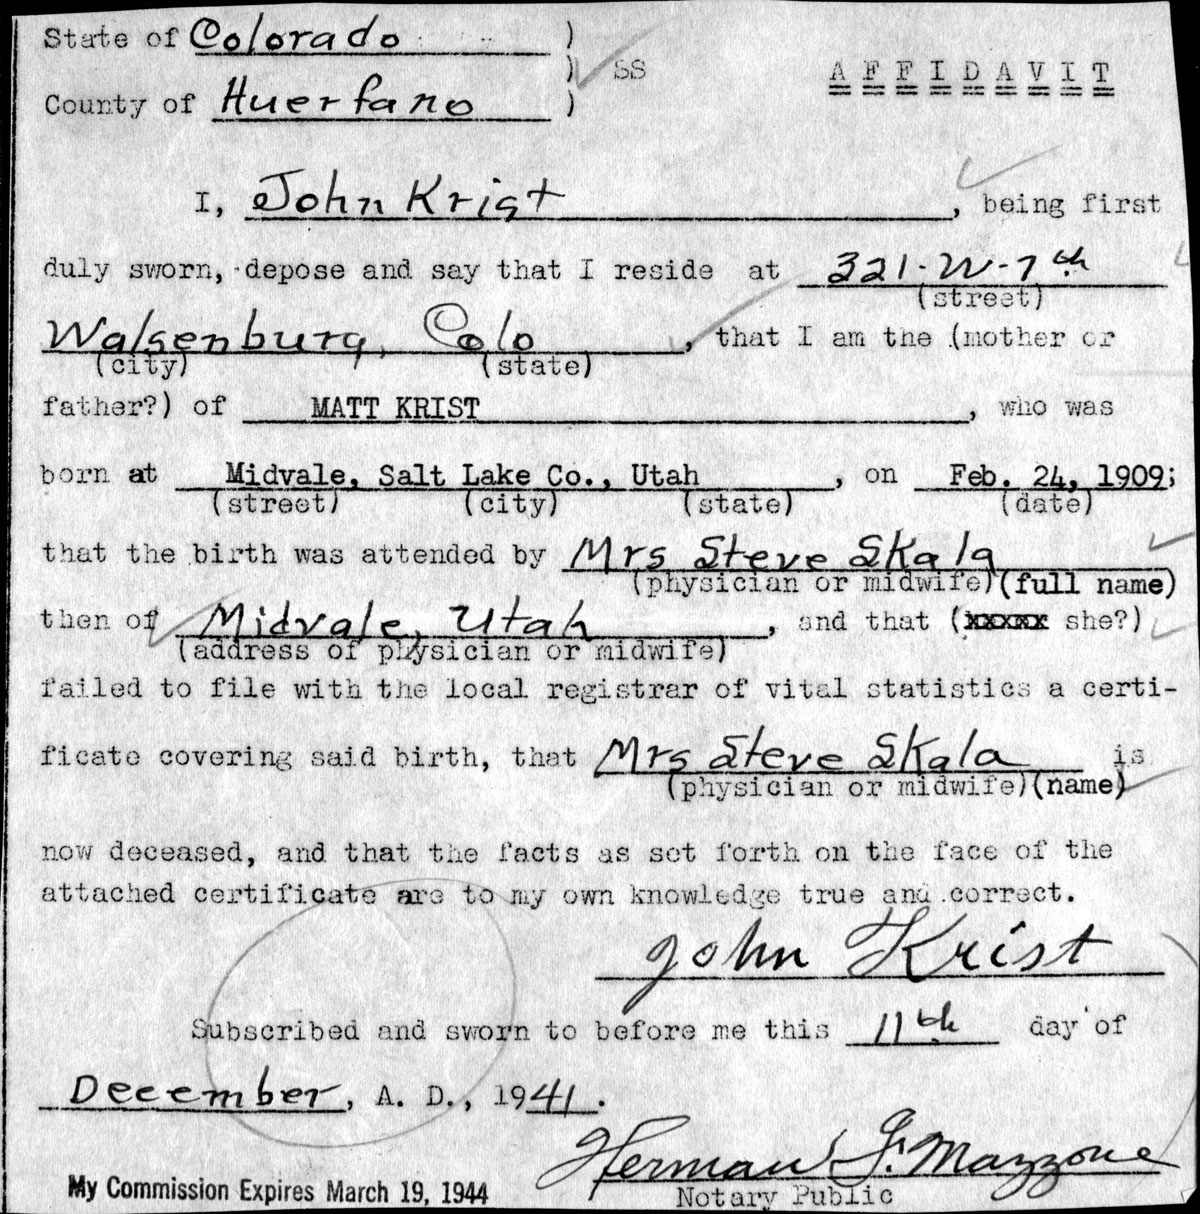 State of Colorado )
) SS AFFIDAVIT
County of Huerfano )
I, John Krist, being first
duly sworn, depose and say that I reside at 321-W-7th
(street)
Walsenburg, Colo, that I am the (mother or
(city) (state)
father?) of MATT KRIST, who was
born at Midvale, Salt Lake Co., Utah, on Feb. 24, 1909;
(street) (city) (state) (date)
that the birth was attended by Mrs Steve Skala
(physician or midwife)(full name)
then of Midvale, Utah, and that (xxxxx she?)
(address of physician or midwife)
failed to file with the local registrar of vital statistics a certi-
ficate covering said birth, that Mrs Steve Skala is
(physician or midwife)(name)
now deceased, and that the facts as set forth on the face of the
attached certificate are to my own knowledge true and correct.
John Krist
Subscribed and sworn to before me this 11th day of
December, A. D., 1941.
Herman J. Mazzone
My Commission Expires March 19, 1944 Notary Public